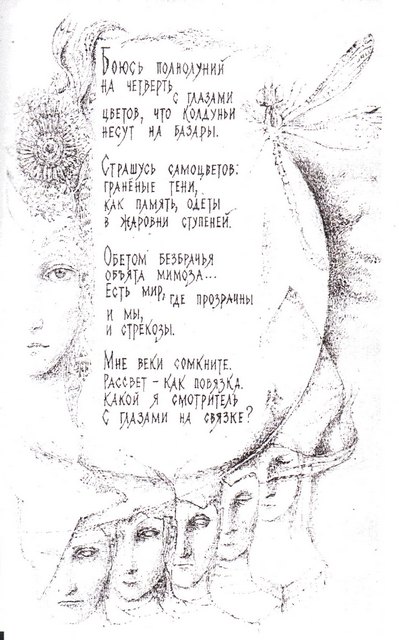 Боюсь полнолуний
на четверть
с глазами
цветов, что колдуньи
несут на базары.
Страшусь самоцветов:
гранёные тени,
как память, одеты
в жаровни ступеней.
Обетом безбрачья
объята мимоза...
Есть мир, где прозрачны
и мы,
и стрекозы.
Мне веки сомкните.
Рассвет – как повязка.
Какой я смотритель
с глазами на связке?